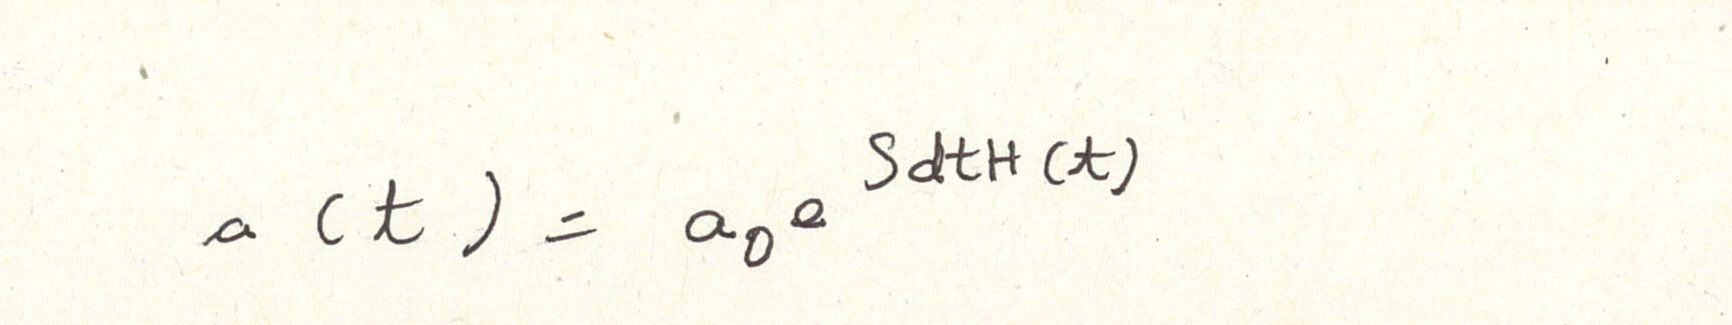 a(t) = a₀e^{∫dtH(t)}